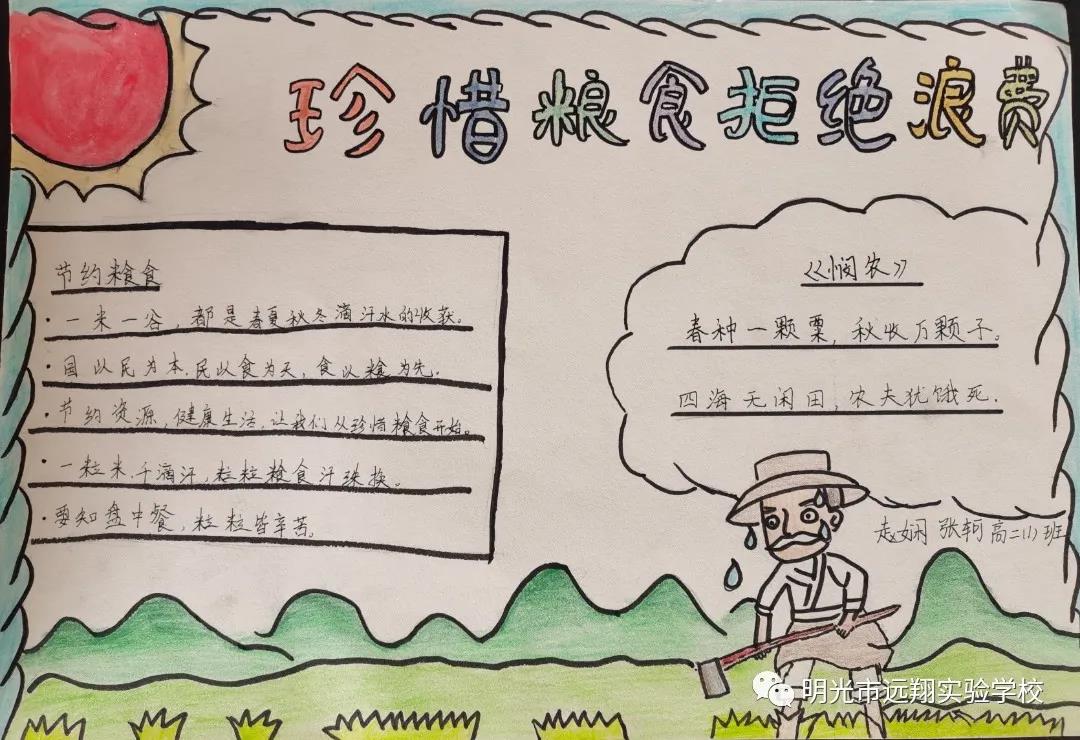 珍惜粮食拒绝浪费
节约粮食
· 一米一谷，都是春夏秋冬滴汗水的收获。
· 国以民为本，民以食为天，食以粮为先。
· 节约资源，健康生活，让我们从珍惜粮食开始。
· 一粒米，千滴汗，粒粒粮食汗珠换。
· 要知盘中餐，粒粒皆辛苦。
《悯农》
春种一颗粟，秋收万颗子。
四海无闲田，农夫犹饿死.
赵娴 张轲 高二(1)班
明光市远翔实验学校